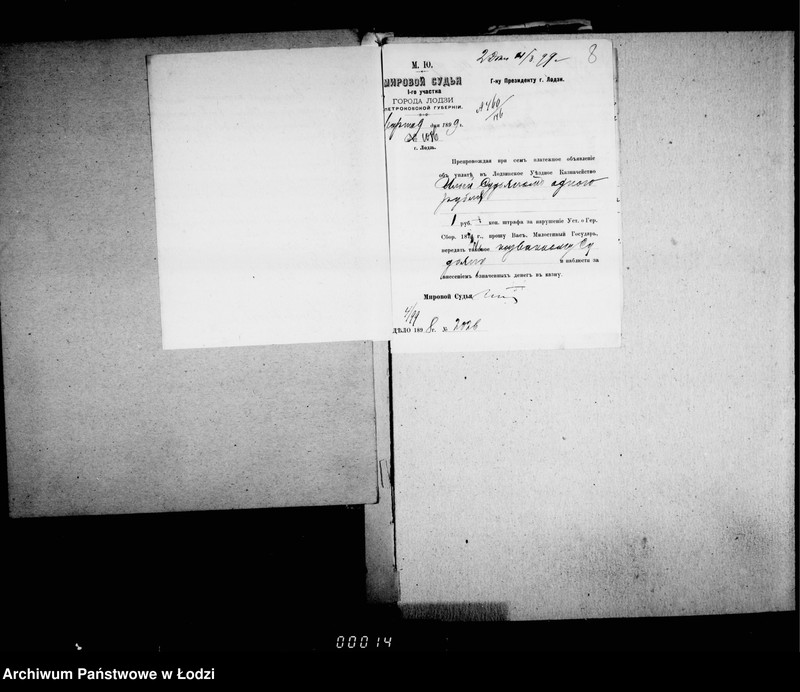 8
М. Ю.
МИРОВОЙ СУДЬЯ
1-го участка
ГОРОДА ЛОДЗИ
ПЕТРОКОВСКОЙ ГУБЕРНІИ.
Марта 9 дня 1899 г.
г. Лодзь.
Г-ну Президенту г. Лодзи.
Препровождая при семъ платежное объявленіе
объ уплатѣ въ Лодзинское Уѣздное Казначейство
одного
рубля
1 руб. коп. штрафа за нарушеніе Уст. о Гер.
Сбор. 187 г., прошу Васъ, Милостивый Государь,
передать таковое названному Су
и наблюсти за
внесеніемъ означенныхъ денегъ въ казну.
Мировой Судья
4/99
ДѢЛО 1898 г. № 2026
00014
Archiwum Państwowe w Łodzi